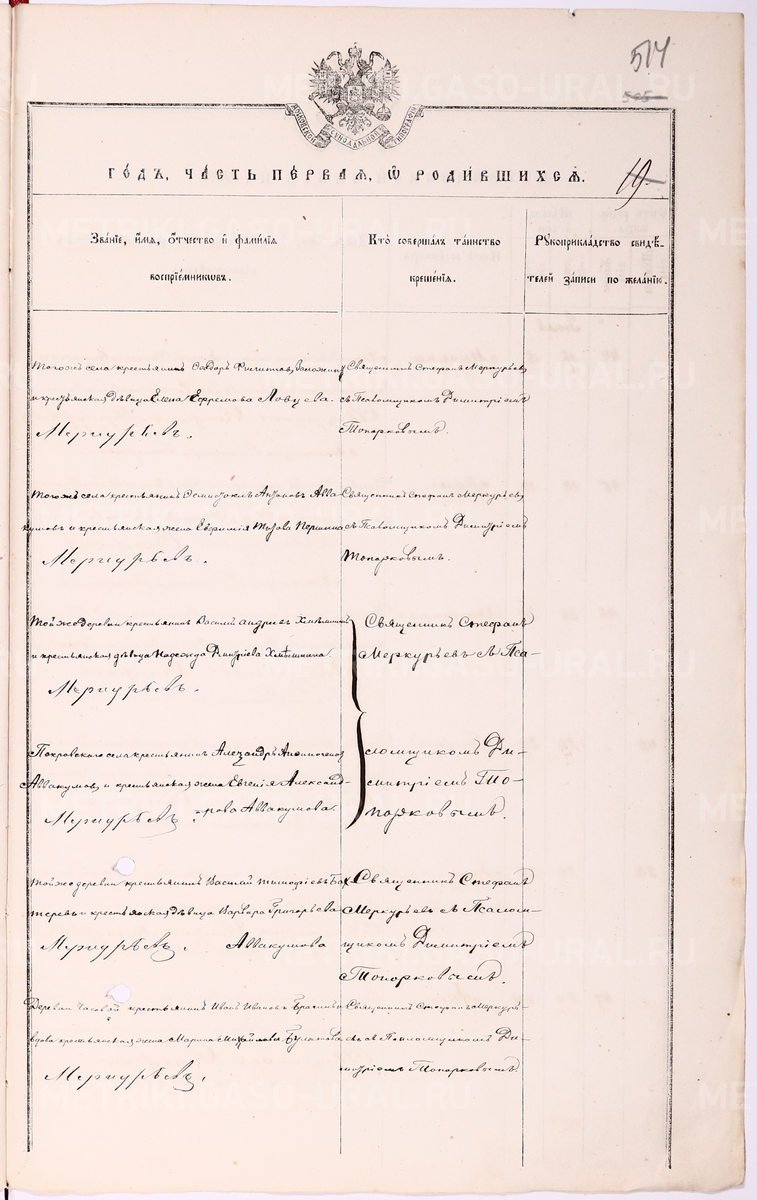 514
505
МОСКОВСКОЙ СѴНОДАЛЬНОЙ ТИПОГРАФІИ
ГО́ДЪ, ЧА́СТЬ ПЕ́РВАЯ, Ѡ РОДИ́ВШИХСЯ.
19.
Зва́нїе, и́мя, о́тчество и фами́лїя
воспрїе́мниковъ.
Кто̀ соверша́лъ та́инство
креще́нїя.
Рꙋкоприкла́дство свидѣ́-
телей за́писи по жела́нїю.
Тогожъ села крестьянинъ Ѳедоръ
и крестьянская дѣвица Елена Ефремова
Меркурьевъ.
Священникъ Стефанъ Меркурьевъ
съ Псаломщикомъ Димитріемъ
Топорковымъ.
Тогожъ села крестьянинъ Ѳемистоклъ Антоновъ Авва-
кумовъ и крестьянская жена Евфимія
Меркурьевъ.
Священникъ Стефанъ Меркурьевъ
съ Псаломщикомъ Димитріемъ
Топорковымъ.
Той же деревни крестьянинъ Василій Андреевъ
и крестьянская дѣвица Надежда Димитріева
Меркурьевъ.
Священникъ Стефанъ
Меркурьевъ съ Пса-
Покровскаго села крестьянинъ Александръ
Аввакумовъ и крестьянская жена Евгенія Александ-
рова Аввакумова.
Меркурьевъ.
ломщикомъ Ди-
митріемъ То-
порковымъ.
Той же деревни крестьянинъ Василій Тимофіевъ Бах-
теревъ и крестьянская дѣвица Варвара Григорьева
Аввакумова
Меркурьевъ.
Священникъ Стефанъ
Меркурьевъ съ Псалом-
щикомъ Димитріемъ
Топорковымъ.
Деревни Часовой крестьянинъ Иванъ Ивановъ
вдова крестьянская жена Марина Михайлова Булатова
Меркурьевъ.
Священникъ Стефанъ Меркурь-
евъ съ Псаломщикомъ Ди-
митріемъ Топорковымъ.